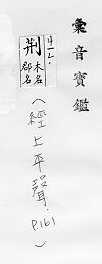 彙音寶鑑
荆
木名
郡名
（經上平聲．P161）